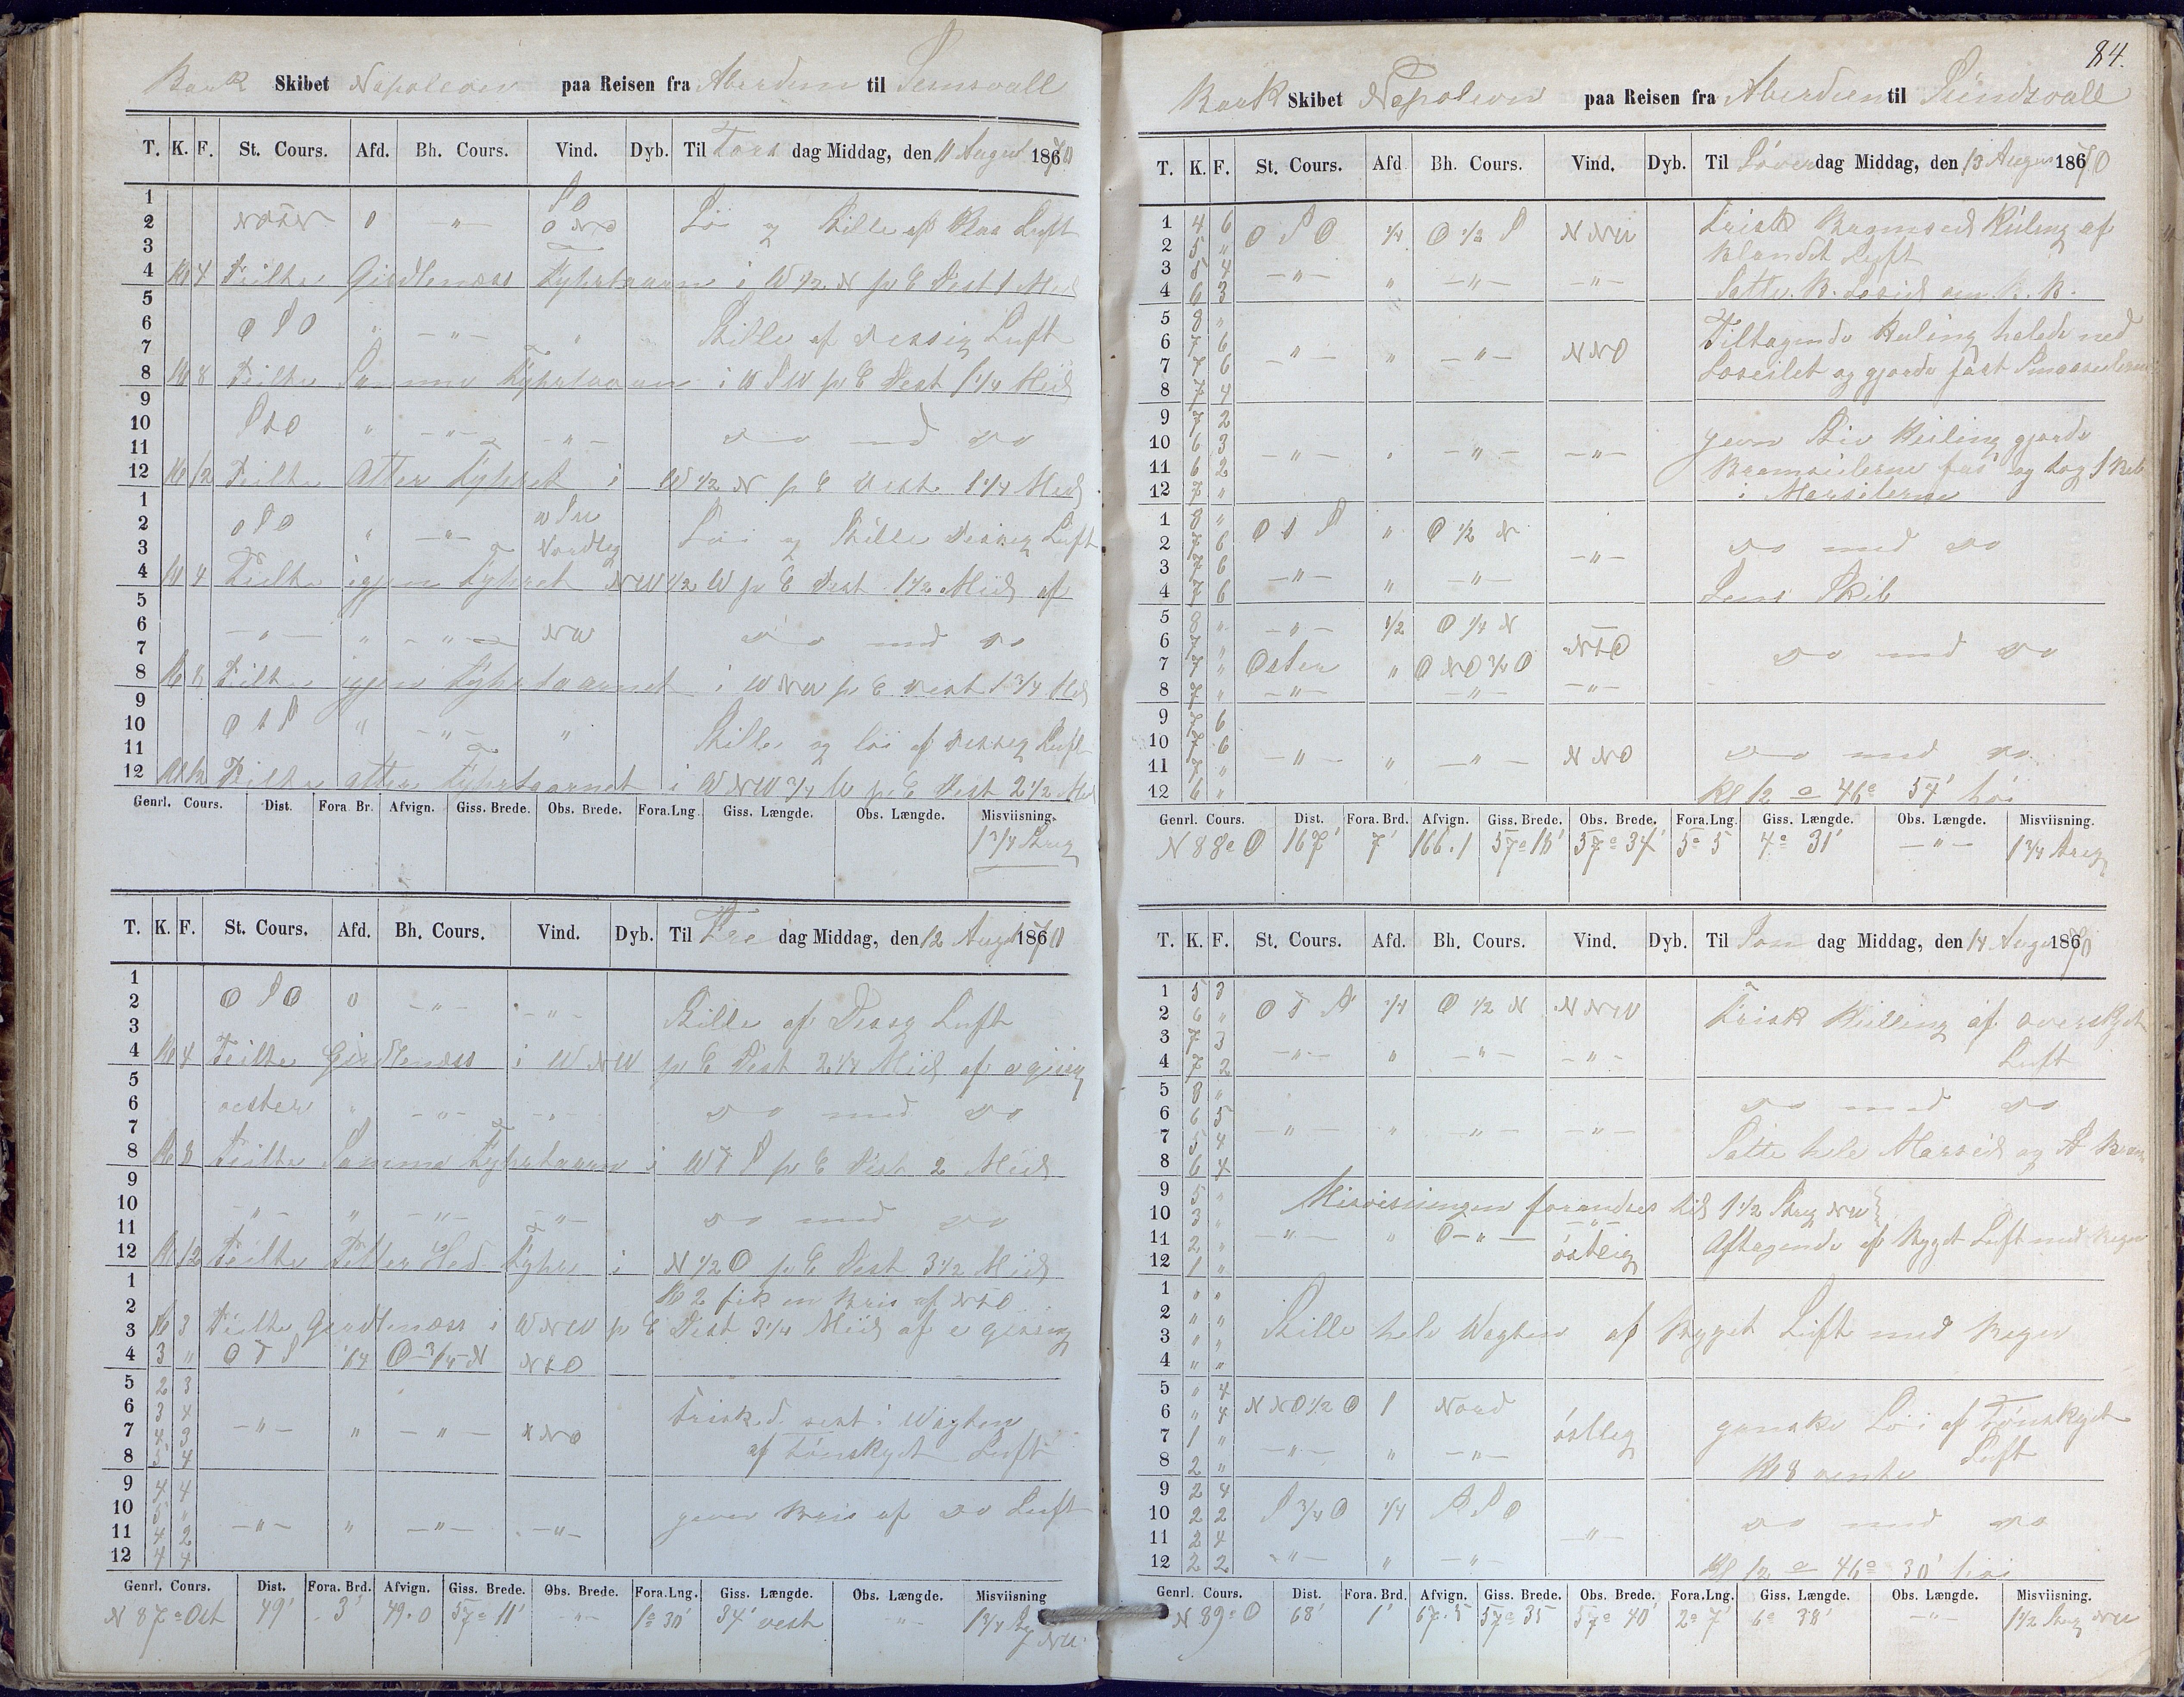 Bark Skibet Napoleon paa Reisen fra Aberdeen til Sunsvall
T. K. F. St. Cours. Afd. Bh. Cours. Vind. Dyb. Til Tors dag Middag, den 11 August 1870
1 SO
2 O -"- O NO Löi og Stille af Klar Luft
3
4 Kl 4 Peilte Girdlenæss Fyhrtaarn i W 1/2 N pr C Dist 1 Miil
5
6 O S O " -"- " Stille af Dessig Luft
7
8 Kl 8 Peilte Samme Fyhrtaarn i W S W pr C Dist 1 1/4 Miil
9
10 StO " -"- -"- do med do
11
12 Kl 12 Peilte Atter Fyhret i W 1/2 N pr C Dist 1 1/4 Miil
1
2 O S O " -"- Löi og Stille Dessig Luft
3 Nordleg
4 Kl 4 Peilte igjen Fyhret NW 1/2 W pr C Dist 1 1/2 Miil af
5
6 -"- " -"- NW do med do
7
8 Kl 8 Peilte igjen Fyhrtaarnet i W NW pr C Dist 1 3/4 Miil
9
10 O t S " -"- " Stille og löi af Dessig Luft
11
12 Kl 12 Peilte atter Fyhrtaarnet i W NW 3/4 W pr C Dist 2 1/2 Miil
Genrl. Cours. Dist. Fora Br. Afvign. Giss. Brede. Obs. Brede. Fora.Lng. Giss. Længde. Obs. Længde. Misviisning.
1 3/4 Streg
T. K. F. St. Cours. Afd. Bh. Cours. Vind. Dyb. Til Fre dag Middag, den 12 August 1870
1
2 O S O O -"- -"- Stille af Dessig Luft
3
4 Kl 4 Peilte Girdlenæss i W NW pr C Dist 2 1/4 Miil af
5
6 oester " -"- -"- do med do
7
8 Kl 8 Peilte Samme Fyhrtaarn i W t S pr C Dist 2 Miil
9
10 -"- " -"- -"- do med do
11
12 Kl 12 Peilte Hed Fyhr i N 1/2 O pr C Dist 3 1/2 Miil
1 Kl 2 fik en Bris af NtO
2
3 Kl 3 Peilte Girdlenæss i W NW pr C Dist 3 1/4 Miil af
4 3 " O t S 1/4 O 3/4 N NtO
5 2 3
6 3 4 Frisked i Wagten
7 4 3 -"- " -"- NNO af Tönskyet Luft
8 5 4
9 4 4
10 5 " jevn Bris af do Luft
11 4 2 -"- " -"- -"-
12 4 4
Genrl. Cours. Dist. Fora. Brd. Afvign. Giss. Brede. Obs. Brede. Fora.Lng. Giss. Længde. Obs. Længde. Misviisning
N 87° Ost 49' 3' 49.0 57° 11' -"- 1° 30' 34' vest -"- 1 3/4 Str NW
84.
Bark Skibet Napoleon paa Reisen fra Aberdeen til Sündsvall
T. K. F. St. Cours. Afd Bh. Cours. Vind. Dyb. Til Löver dag Middag, den 13 August 1870
1 4 6 O S O 1/4 O 1/2 S N NW Frisk Bramseils Kuling af
2 5 " Blandet Luft
3 5 4 -"- " -"- -"-
4 6 3 Satte
5 8 " Tiltagende Kuling halede ned
6 7 6 -"- " -"- N NO
7 7 6 Loseilet og gjorde fast Smaaseilene
8 7 4
9 7 2 jevn Stiv Kuling gjorde
10 6 3 -"- " -"- -"- Bramseilerne fast og tog 1 Reb
11 6 2
12 7 " i Merseilerne
1 8 " O t S " O 1/2 N
2 7 6 -"- do med do
3 7 6 -"- " -"-
4 7 6 Lens Skib
5 8 " -"- 1/2 O 1/4 N
6 7 " NtO do med do
7 7 " Oster " O NO 3/4 O
8 7 " -"- -"- -"-
9 7 6
10 7 6 -"- " -"- N NO do med do
11 7 "
12 6 " Kl 12 46° 54' höi
Genrl. Cours. Dist. Fora. Brd. Afvign. Giss. Brede. Obs. Brede. Fora.Lng. Giss. Længde. Obs. Længde. Misviisning.
N 88° O 167' 7' 166.1 57° 18' 57° 34' 5° 5 4° 31' -"- 1 3/4 Streg
T. K. F. St. Cours. Afd. Bh. Cours. Vind. Dyb. Til Søn dag Middag, den 14 August 1870
1 5 3 O t S 1/4 O 1/2 N N NW Frisk Kuling af overskyet
2 6 "
3 7 3 -"- " -"- -"- Luft
4 7 2
5 8 " do med do
6 6 5
7 5 4 -"- " -"- -"- Satte hele Merseil og Bram
8 6 4
9 5 " Misvisningen forandres til 1 1/2 Streg NW
10 3 "
11 2 " -"- " O -"- östleig Aftagende af Bygget Luft med Regn
12 1 "
1 " "
2 " " Stille hele Wagten af Bygget Luft med Regn
3 " "
4 " "
5 " 4 N NO 1/2 O 1 Nord
6 " 4 östleg ganske Löi af Tönskyet
7 1 " -"- " -"- Luft
8 2 " Kl 8 vendte
9 2 4
10 2 2 S 3/4 O 1/4 S S O do med do
11 2 4 -"-
12 2 2 -"- " -"- Kl 12 46° 30' höi
Genrl. Cours. Dist. Fora. Brd. Afvign. Giss. Brede. Obs. Brede. Fora.Lng. Giss. Længde. Obs. Længde. Misviisning.
N 89° O 68' 1' 67.5 57° 35 57° 40' 2° 7' 6° 38' -"- 1 1/2 Streg NW